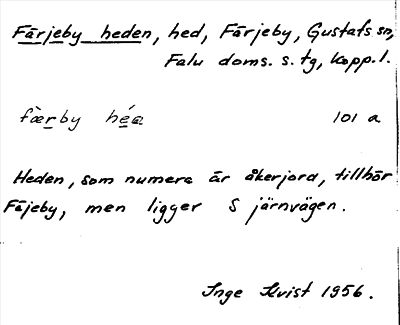 Färjeby heden, hed, Färjeby, Gustafs sn,
Falu doms. s. tg, Kopp. l.
fæ̀rby héa 101 a
Heden, som numera är åkerjord, tillhör
Fäjeby, men ligger S järnvägen.
Inge Kvist 1956.